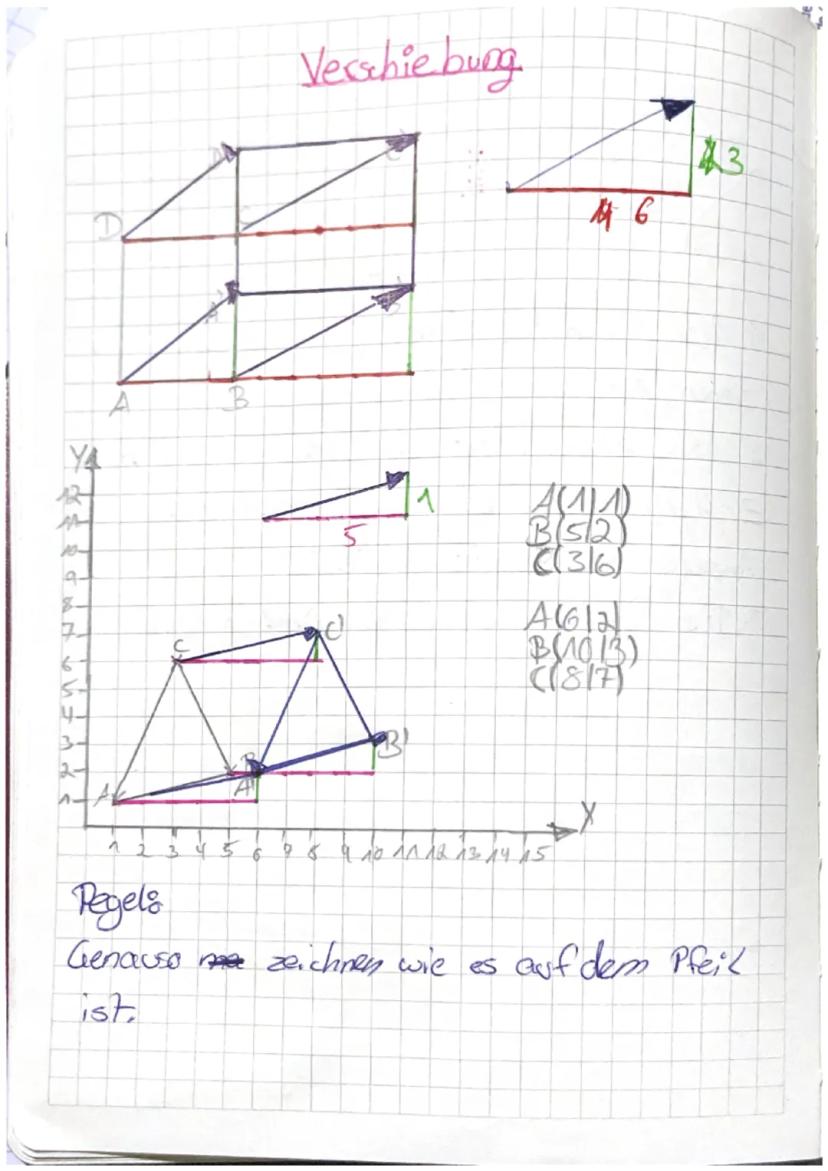 Verschiebung
3
6
D
C
C'
A'
A
B
Y
12
11
10
9
8
7
6
5
4
3
2
1
1
5
A(1|1)
B(5|2)
C(3|6)
A(6|2)
B(10|3)
C(8|7)
C
C'
A
B
A'
B'
X
1 2 3 4 5 6 7 8 9 10 11 12 13 14 15
Regel:
Genauso zeichnen wie es auf dem Pfeil
ist.